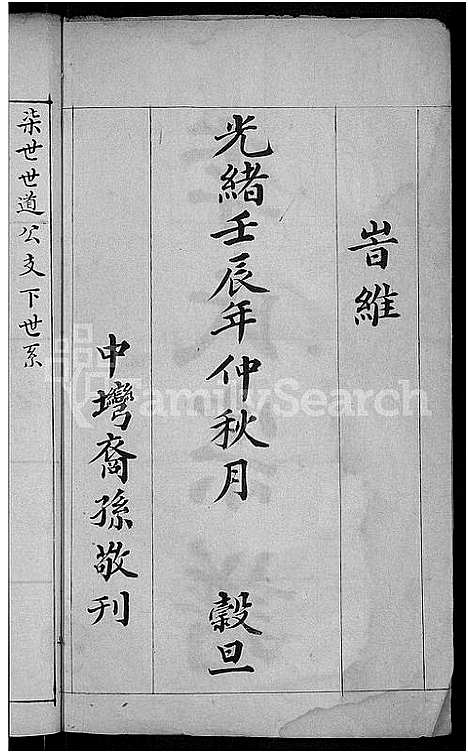 旹維
光緒壬辰年仲秋月 穀旦
中塆裔孫敬刊
柒世世道公支下世系
FamilySearch